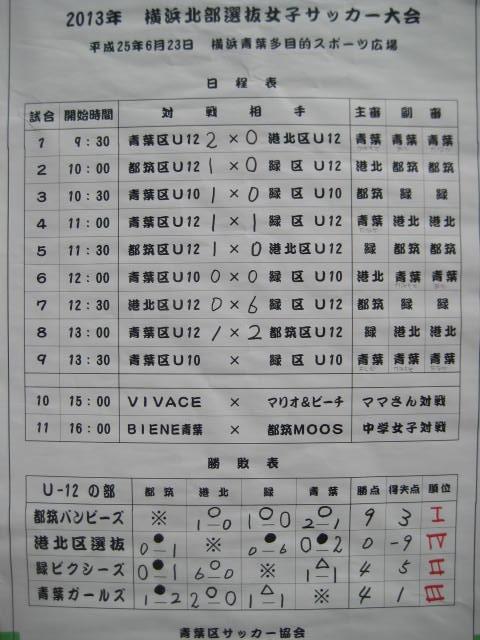 2013年 横浜北部選抜女子サッカー大会
平成25年6月23日 横浜青葉多目的スポーツ広場
日 程 表
試合 開始時間 対 戦 相 手 主審 副 審
1 9:30 青葉区U12 2 × 0 港北区U12 青葉 青葉 青葉
2 10:00 都筑区U12 1 × 0 緑 区 U12 港北 都筑 都筑
3 10:30 都筑区U10 1 × 0 緑 区 U10 都筑 緑 緑
4 11:00 青葉区U12 1 × 1 緑 区 U12 青葉 港北 港北
5 11:30 都筑区U12 1 × 0 港北区U12 緑 都筑 都筑
6 12:00 青葉区U10 0 × 0 緑 区 U10 港北 青葉 青葉
7 12:30 港北区U12 0 × 6 緑 区 U12 都筑 緑 緑
8 13:00 青葉区U12 1 × 2 都筑区U12 緑 港北 港北
9 13:30 青葉区U10 × 緑 区 U10 青葉 青葉 青葉
10 15:00 VIVACE × マリオ&ピーチ ママさん対戦
11 16:00 BIENE青葉 × 都筑MOOS 中学女子対戦
勝 敗 表
U-12 の部 都筑 港北 緑 青葉 勝点 得失点 順位
都筑バンビーズ ※ 1○0 1○0 2○1 9 3 I
港北区選抜 0●1 ※ 0●6 0●2 0 -9 IV
緑ピクシーズ 0●1 6○0 ※ 1△1 4 5 II
青葉ガールズ 1●2 2○0 1△1 ※ 4 1 III
青葉区サッカー協会